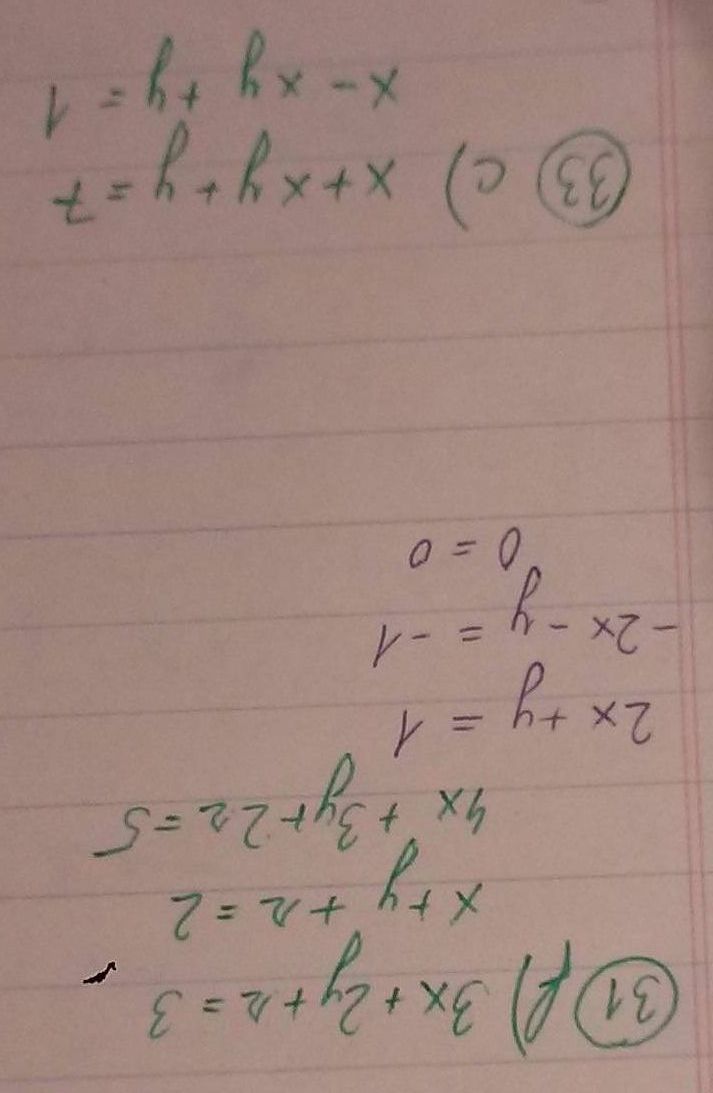 31 f) 3x + 2y + z = 3
x + y + z = 2
4x + 3y + 2z = 5
2x + y = 1
-2x - y = -1
0 = 0
33 c) x + xy + y = 7
x - xy + y = 1